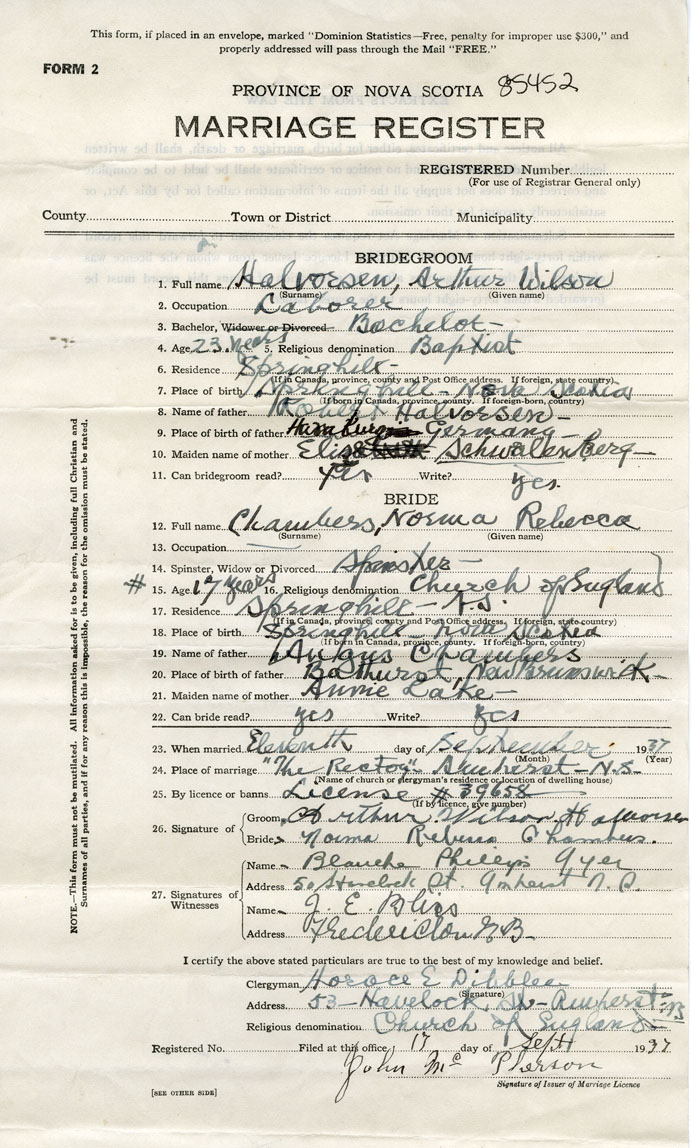 This form, if placed in an envelope, marked "Dominion Statistics—Free, penalty for improper use $300," and
properly addressed will pass through the Mail "FREE."
FORM 2
PROVINCE OF NOVA SCOTIA 85452
MARRIAGE REGISTER
REGISTERED Number
(For use of Registrar General only)
County Town or District Municipality
BRIDEGROOM
1. Full name Halvorsen, Arthur Wilson
(Surname) (Given name)
2. Occupation Laborer
3. Bachelor, Widower or Divorced Bachelor
4. Age 23 years 5. Religious denomination Baptist
6. Residence Springhill
(If in Canada, province, county and Post Office address. If foreign, state country)
7. Place of birth Springhill - Nova Scotia
(If born in Canada, province, county. If foreign-born, country)
8. Name of father Halvorsen
9. Place of birth of father Hamburg Germany
10. Maiden name of mother Schwalenberg
11. Can bridegroom read? yes Write? yes.
BRIDE
12. Full name Chambers, Norma Rebecca
(Surname) (Given name)
13. Occupation
14. Spinster, Widow or Divorced Spinster
# 15. Age 17 years 16. Religious denomination Church of England
17. Residence Springhill - N.S.
(If in Canada, province, county and Post Office address. If foreign, state country)
18. Place of birth Springhill - Nova Scotia
(If born in Canada, province, county. If foreign-born, country)
19. Name of father Angus Chambers
20. Place of birth of father Bathurst, New Brunswick
21. Maiden name of mother Annie Lake
22. Can bride read? yes Write? yes
23. When married Eleventh day of September 1937
(Month) (Year)
24. Place of marriage "The Rectory" Amherst - N.S.
(Name of church or clergyman's residence or location of dwelling house)
25. By licence or banns License # 39658
(If by licence, give number)
26. Signature of Groom Arthur Wilson Halvorsen
Bride Norma Rebecca Chambers.
27. Signatures of Witnesses
Name Blanche Phillips
Address Havelock St. Amherst N.S.
Name J. E. Bliss
Address Fredericton N.B.
I certify the above stated particulars are true to the best of my knowledge and belief.
Clergyman Horace E Dibblee
(Signature)
Address 53 - Havelock St - Amherst - NS
Religious denomination Church of England
Registered No. Filed at this office 17 day of Sept 1937
John McPherson
Signature of Issuer of Marriage Licence
[SEE OTHER SIDE]
NOTE.—This form must not be mutilated. All information asked for is to be given, including full Christian and
Surnames of all parties, and if for any reason this is impossible, the reason for the omission must be stated.